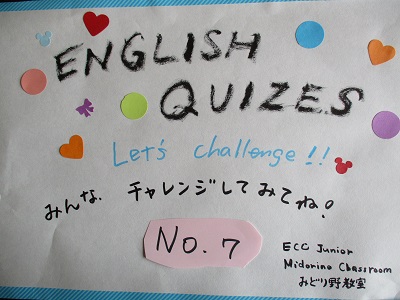 ENGLISH
QUIZES
Let's challenge!!
みんな、チャレンジしてみてね!
No. 7
ECC Junior
Midorino Classroom
みどり野教室